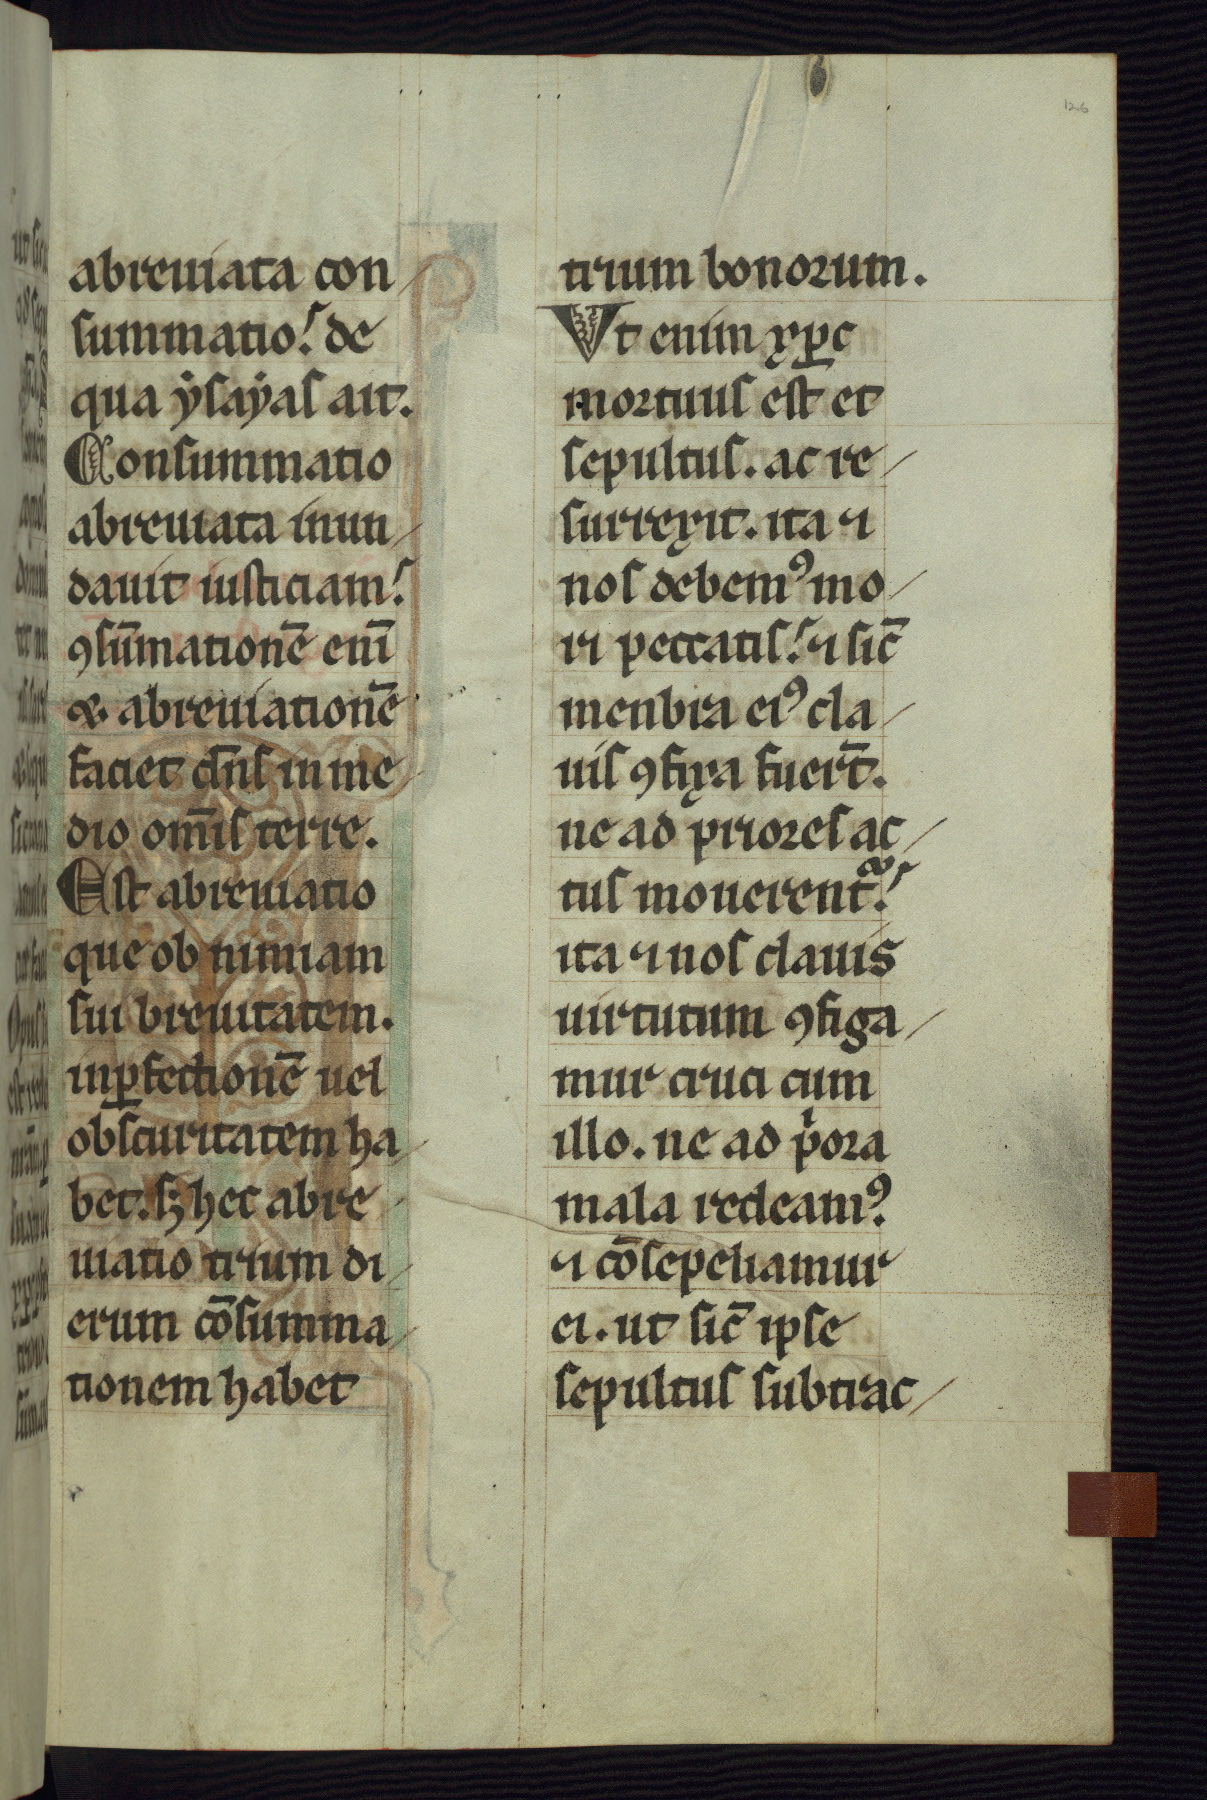 126
abreuiata con
summatio. de
qua ẏsaẏas ait.
Consummatio
abreuiata inun
dauit iusticiam.
ꝯsūmationē eni̅
& abreuiationē
faciet dn̄s in me
dio om̄is terre.
Est abreuiatio
que ob nimiam
sui breuitatem.
inꝑfectionē uel
obscuritatem ha
bet. sꝫ hec abre
uiatio trium di
erum cōsumma
tionem habet
trium bonorum.
Vt enim xp̲c
mortuus est et
sepultus. ac re
surrexit. ita ⁊
nos debemꝰ mo
ri peccatis. ⁊ sic̄
menbra eiꝰ cla
uis ꝯfixa fuer̄t.
ne ad priores ac
tus mouerent᷑.
ita ⁊ nos clauis
uirtutum ꝯfiga
mur cruci cum
illo. ne ad pͥora
mala redeamꝰ.
⁊ cōsepeliamur
ei. ut sic̄ ipse
sepultus subtrac